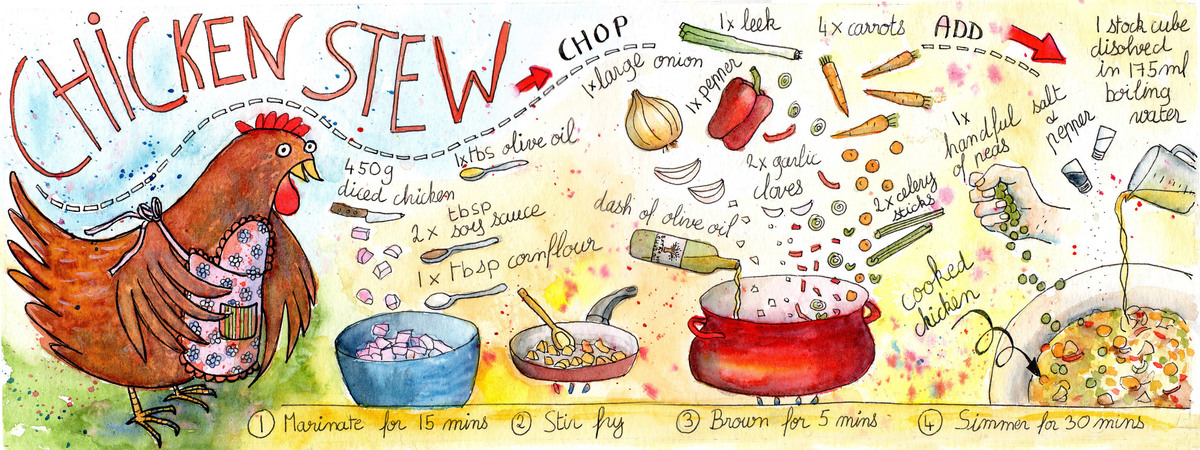 CHICKEN STEW
450g
diced chicken
1xtbs olive oil
2 x tbsp
sois sauce
1 x tbsp cornflour
CHOP
1xlarge onion
1x penner
1x leek
4x carrots
2x garlic
cloves
2x celery
sticks
dash of olive oil
ADD
1x
handful
of peas
salt
&
penner
1 stock cube
disolved
in 175ml
boiling
water
cooked
chicken
1 Marinate for 15 mins
2 Stir fry
3 Brown for 5 mins
4 Simmer for 30 mins